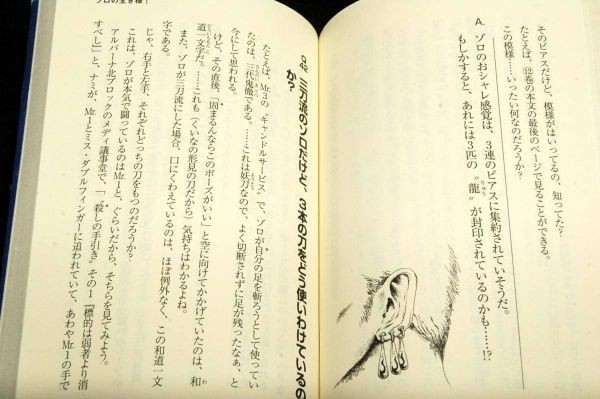 そのピアスだけど、模様がはいってるの、知ってた?
たとえば、⑫巻の本文の最後のページで見ることができる。
この模様……いったい何なのだろうか?
A. ゾロのおシャレ感覚は、3連のピアスに集約されていそうだ。
もしかすると、あれには3匹の〝龍〟が封印されているのかも……!?
りゅう
ゾロの生き様!
Q32 三刀流のゾロだけど、3本の刀をどう使いわけているの
か?
たとえば、Mr.3の〝キャンドルサービス〟で、ゾロが自分の足を斬ろうとして使ってい
たのは、三代鬼徹である。……これは妖刀なので、よく切断されずに足が残ったなぁ、と
今にして思われる。
けど、その直後、「固まるんならこのポーズがいい」と空に向けてかかげていたのは、和
道一文字だ。……これも(くいなの形見の刀だから)気持ちはわかるよね。
また、ゾロが三刀流にした場合、口にくわえているのは、ほぼ例外なく、この和道一文
字である。
じゃ、右手と左手、それぞれどっちの刀をもつのだろうか?
これは、ゾロが本気で闘っているのはMr.1と、ぐらいだから、そちらを見てみよう。
アルバーナ北ブロックのメディ議事堂で、「〝殺しの手引き〟その1『標的は弱者より消
すべし』」と、ナミが、Mr.1とミス・ダブルフィンガーに追われていて、あわやMr.1の手で